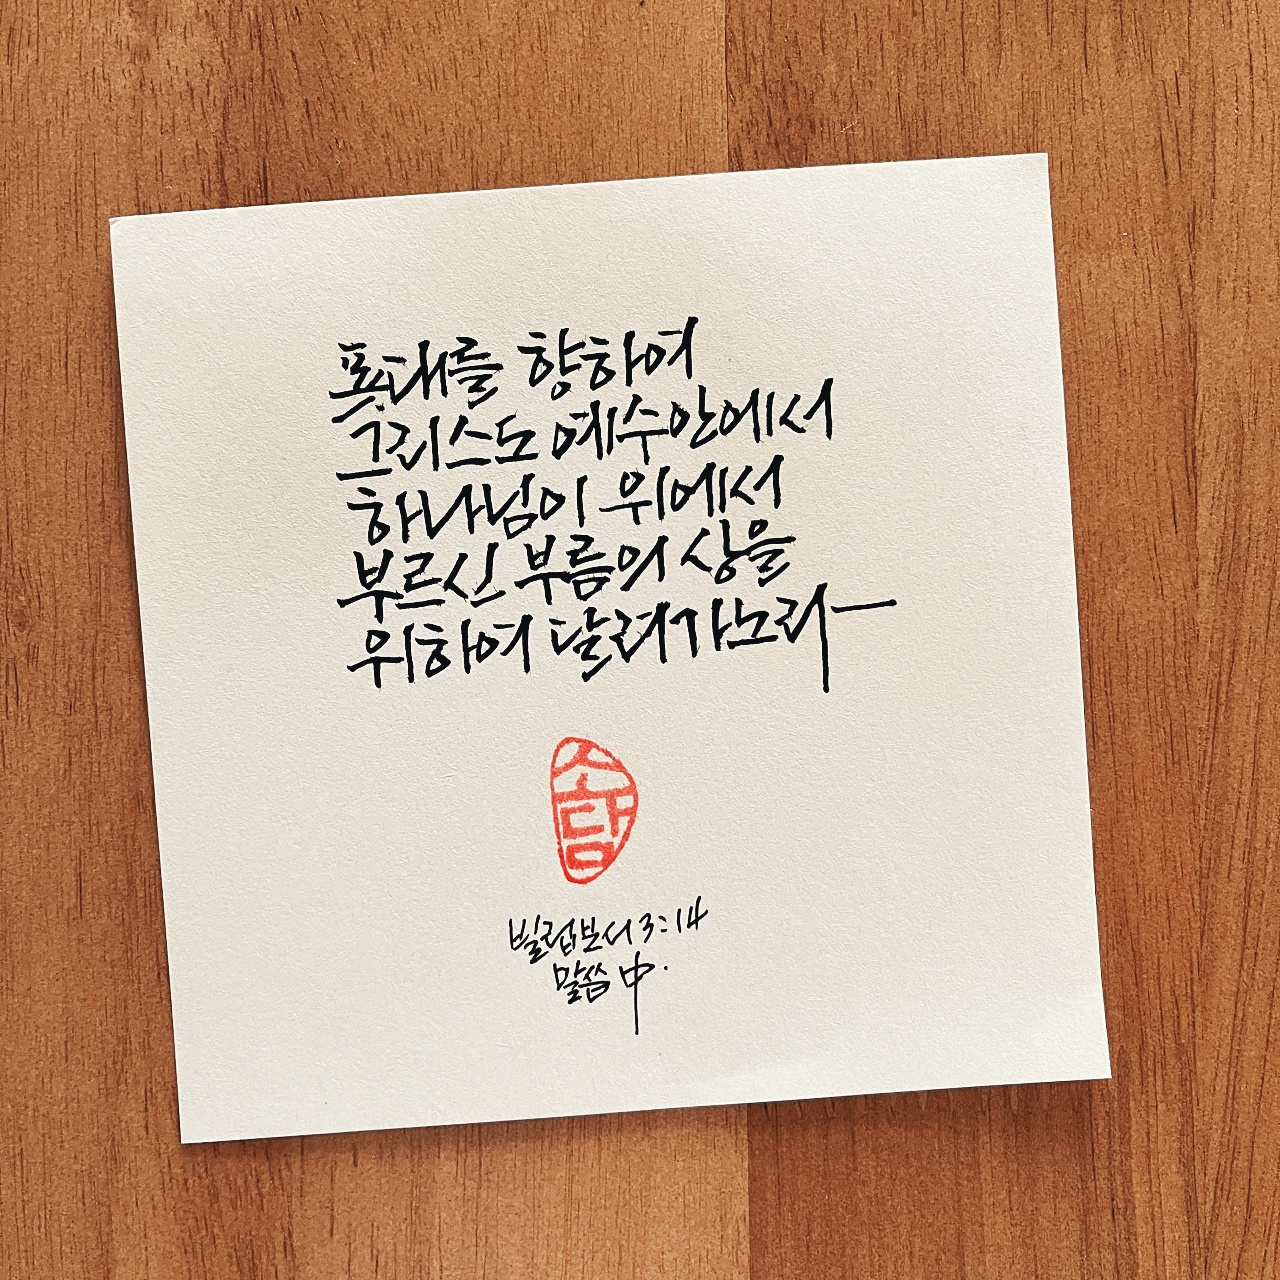 푯대를 향하여
그리스도 예수 안에서
하나님이 위에서
부르신 부름의 상을
위하여 달려가노라
소담
빌립보서 3:14
말씀 中.